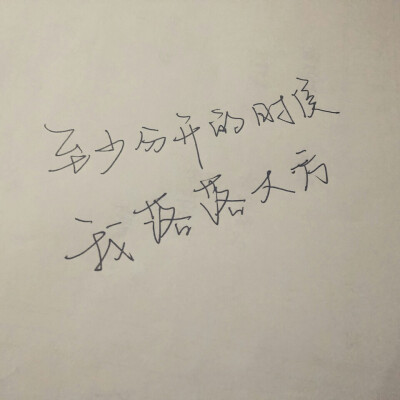 至少分开的时候
我落落大方